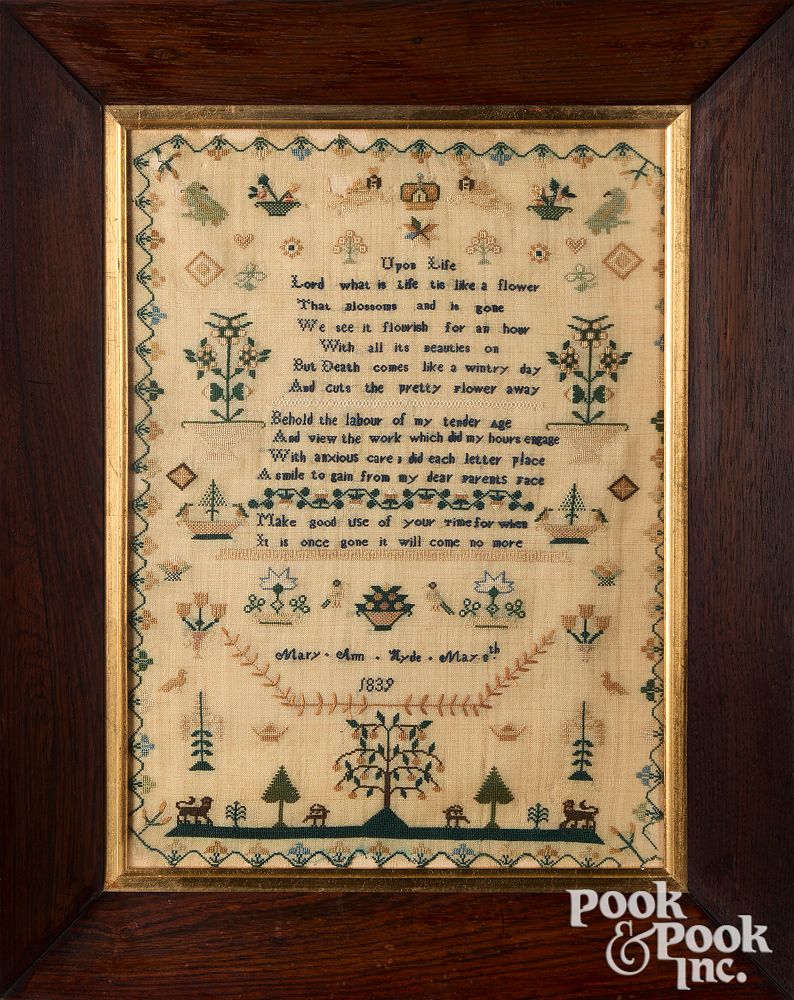 Upon Life
Lord what is Life tis like a flower
That Blossoms and is gone
We see it flourish for an hour
With all its Beauties on
But Death comes like a wintry day
And cuts the pretty Flower away
Behold the labour of my tender Age
And view the work which did my hours engage
With anxious care did each letter place
A smile to gain from my dear Parents Face
Make good Use of your Time for when
It is once gone it will come no more
Mary Ann Hyde May 8th
1839
POOK
& POOK
INC.